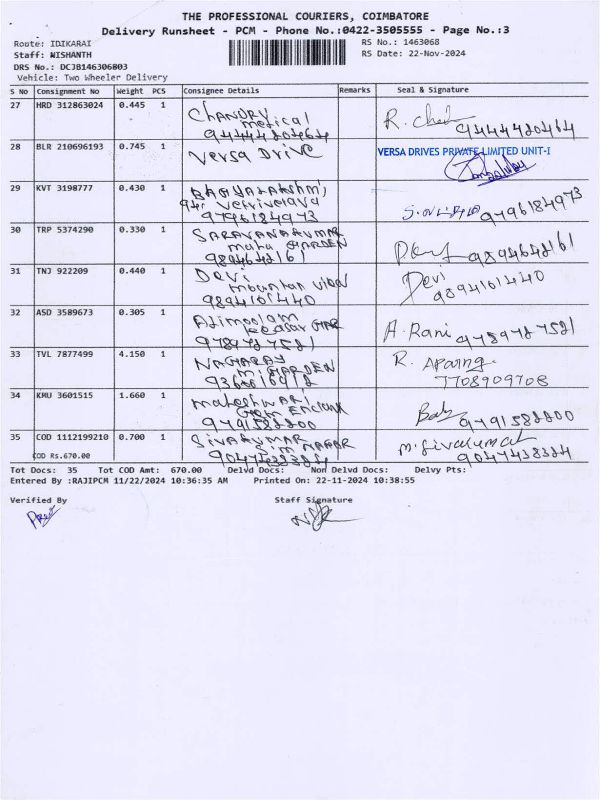 THE PROFESSIONAL COURIERS, COIMBATORE
Delivery Runsheet - PCM - Phone No.:0422-3505555 - Page No.:3
Route: IDIKARAI
RS No.: 1463068
Staff: NISHANTH
RS Date: 22-Nov-2024
DRS No.: DCJB146306803
Vehicle: Two Wheeler Delivery
S No Consignment No Weight PCS Consignee Details Remarks Seal & Signature
27 HRD 312863024 0.445 1
medical
9444420464 9444420464
28 BLR 210696193 0.745 1 Versa Drive VERSA DRIVES PRIVATE LIMITED UNIT-I
29 KVT 3198777 0.430 1
9796184973 9796184973
30 TRP 5374290 0.330 1 SARAVANAKUMAR
GARDEN
9894642161 9894642161
31 TNJ 922209 0.440 1 DEVI Devi
mountan view
9894161440 9894161440
32 ASD 3589673 0.305 1 A. Rani
9789727521 9789727521
33 TVL 7877499 4.150 1 R.
GARDEN
7708909708
34 KMU 3601515 1.660 1 maheshwari
9791582200 9791582200
35 COD 1112199210 0.700 1 SIVAKUMAR m. Sivakumar
COD Rs.670.00 9047438324
Tot Docs: 35 Tot COD Amt: 670.00 Delvd Docs: Non Delvd Docs: Delvy Pts:
Entered By :RAJIPCM 11/22/2024 10:36:35 AM Printed On: 22-11-2024 10:38:55
Verified By Staff Signature